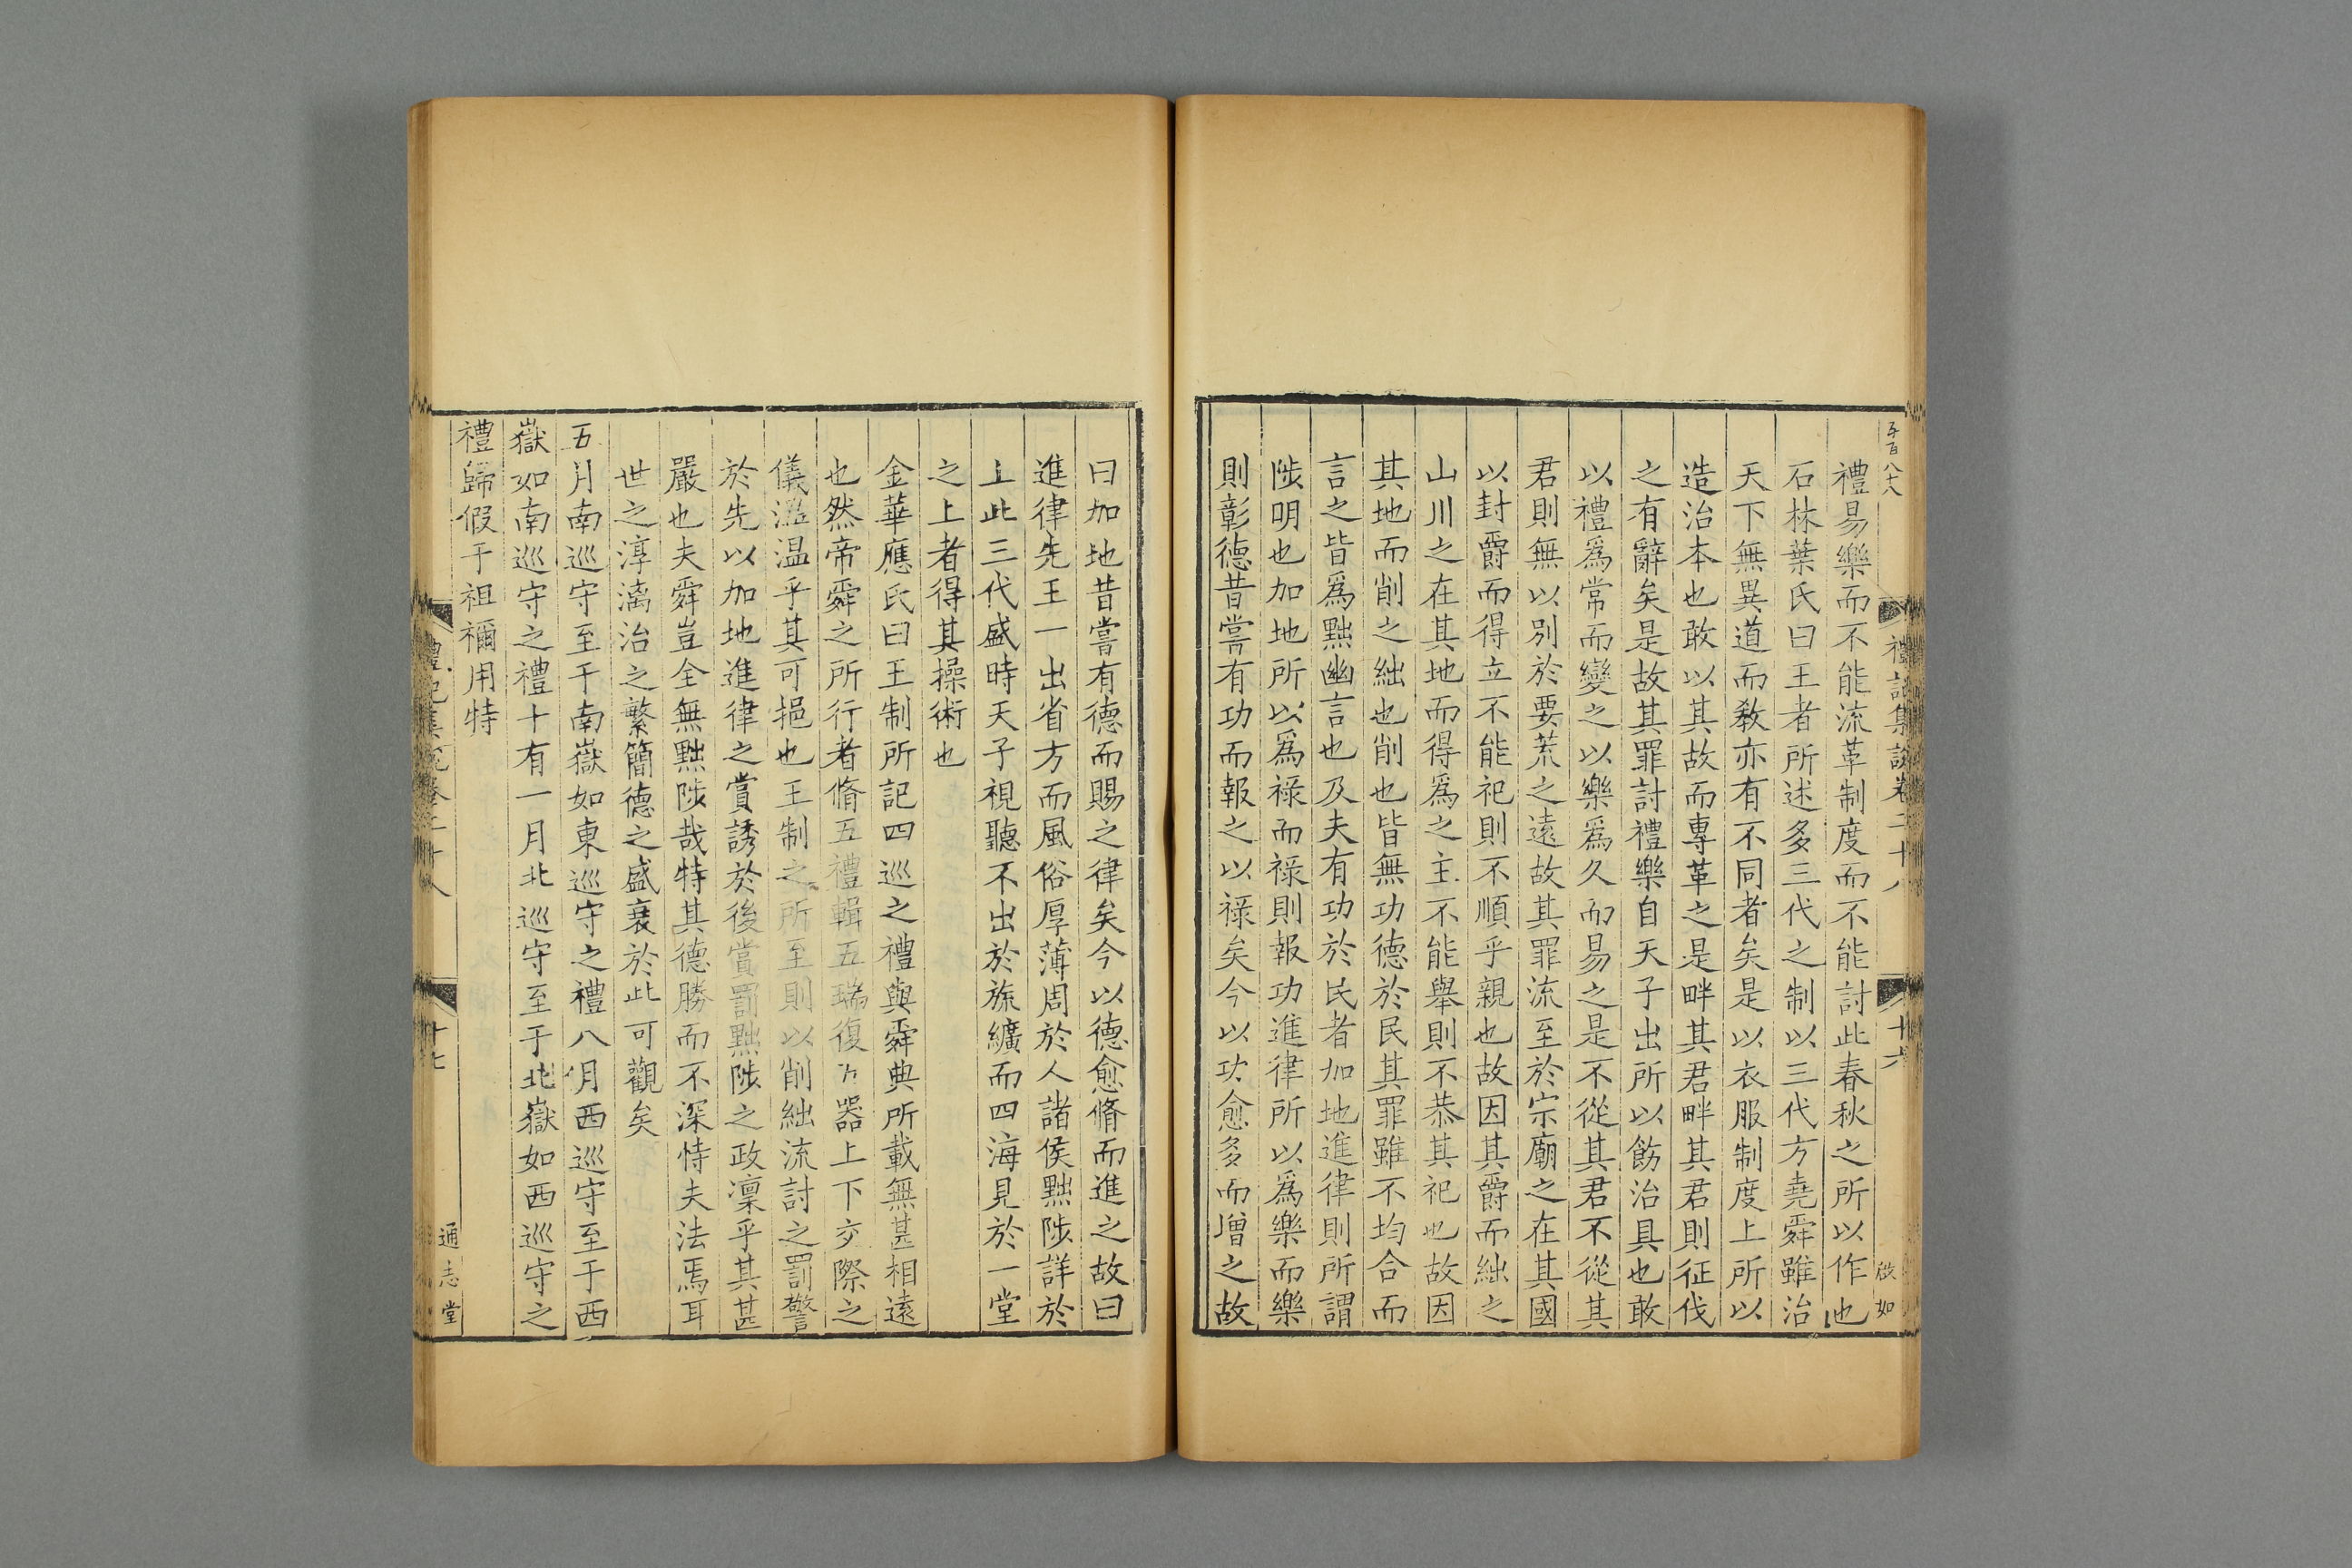 五百八十八
禮記集說卷二十八
十六
啟如
禮易樂而不能流革制度而不能討此春秋之所以作也
石林葉氏曰王者所述多三代之制以三代方堯舜雖治
天下無異道而敎亦有不同者矣是以衣服制度上所以
造治本也敢以其故而專革之是畔其君畔其君則征伐
之有辭矣是故其罪討禮樂自天子出所以飭治具也敢
以禮爲常而變之以樂爲久而易之是不從其君不從其
君則無以別於要荒之遠故其罪流至於宗廟之在其國
以封爵而得立不能祀則不順乎親也故因其爵而絀之
山川之在其地而得爲之主不能舉則不恭其祀也故因
其地而削之絀也削也皆無功德於民其罪雖不均合而
言之皆爲黜幽言也及夫有功於民者加地進律則所謂
陟明也加地所以爲祿而祿則報功進律所以爲樂而樂
則彰德昔嘗有功而報之以祿矣今以功愈多而增之故
曰加地昔嘗有德而賜之律矣今以德愈脩而進之故曰
進律先王一出省方而風俗厚薄周於人諸侯黜陟詳於
上此三代盛時天子視聽不出於旒纊而四海見於一堂
之上者得其操術也
金華應氏曰王制所記四巡之禮與舜典所載無甚相遠
也然帝舜之所行者脩五禮輯五瑞復五器上下交際之
儀溫溫乎其可挹也王制之所至則以削絀流討之罰警
於先以加地進律之賞誘於後賞罰黜陟之政凜乎其甚
嚴也夫舜豈全無黜陟哉特其德勝而不深恃夫法焉耳
世之淳漓治之繁簡德之盛衰於此可觀矣
五月南巡守至于南嶽如東巡守之禮八月西巡守至于西
嶽如南巡守之禮十有一月北巡守至于北嶽如西巡守之
禮歸假于祖禰用特
禮記集說卷二十八
十七
通志堂